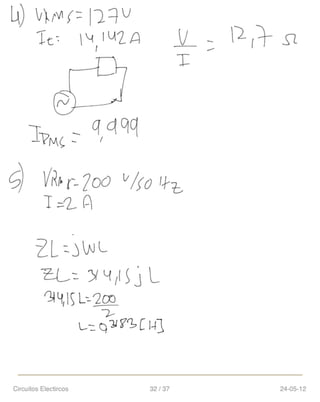 4) VRMS=127V
Ic: 14,142A
V/I = 12,7 Ω
IRMS = 9,999
5) 200 V/50 Hz
I=2 A
ZL=jWL
ZL= 314,15jL
314,15L=200/2
L=0,3183[H]
Circuitos Electircos 32 / 37 24-05-12